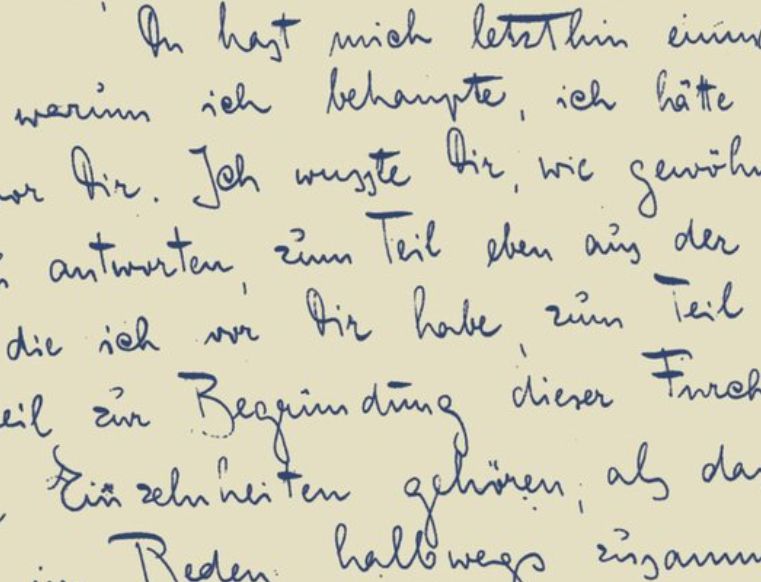 Du hast mich letzthin einm
warum ich behaupte, ich hätte
vor Dir. Ich wusste Dir, wie gewöhn
antworten, zum Teil eben aus der
die ich vor Dir habe, zum Teil
eil zur Begründung dieser Furch
Einzelnheiten gehören, als da
Reden halbwegs zusamm